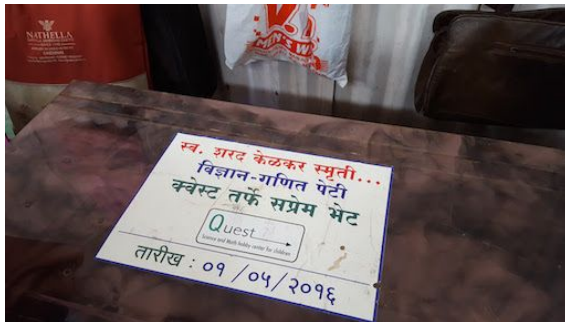 NATHELLA
V2
MEN'S W
स्व. शरद केळकर स्मृती...
विज्ञान-गणित पेटी
क्वेस्ट तर्फे सप्रेम भेट
Quest
Science and Math hobby center for children
तारीख : ०१ /०५/२०१६